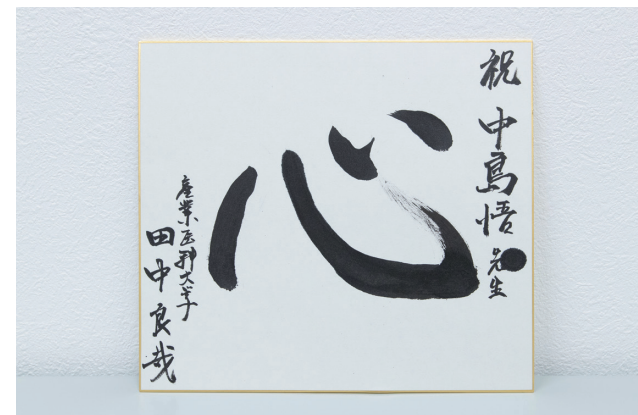 祝 中島悟先生
心
産業医科大学
田中良哉